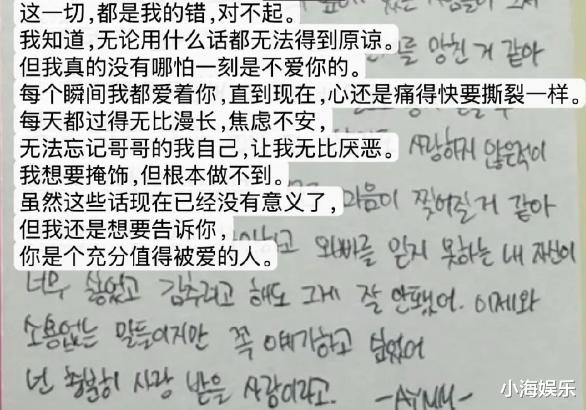 这一切,都是我的错,对不起。
我知道,无论用什么话都无法得到原谅。
但我真的没有哪怕一刻是不爱你的。
를 망친 거 같아
每个瞬间我都爱着你,直到现在,心还是痛得快要撕裂一样。
每天都过得无比漫长,焦虑不安,
无法忘记哥哥的我自己,让我无比厌恶。
사랑하지 않은적이
我想要掩饰,但根本做不到。
虽然这些话现在已经没有意义了,
마음이 찢어질거 같아
但我还是想要告诉你,
你是个充分值得被爱的人。
오빠를 잊지 못하는 내 자신이
너무 싫었고 감추려고 해도 그게 잘 안됐어. 이제와
소용없는 말들이지만 꼭 얘기하고 싶었어
넌 충분히 사랑 받을 사람이라고.
小海娱乐